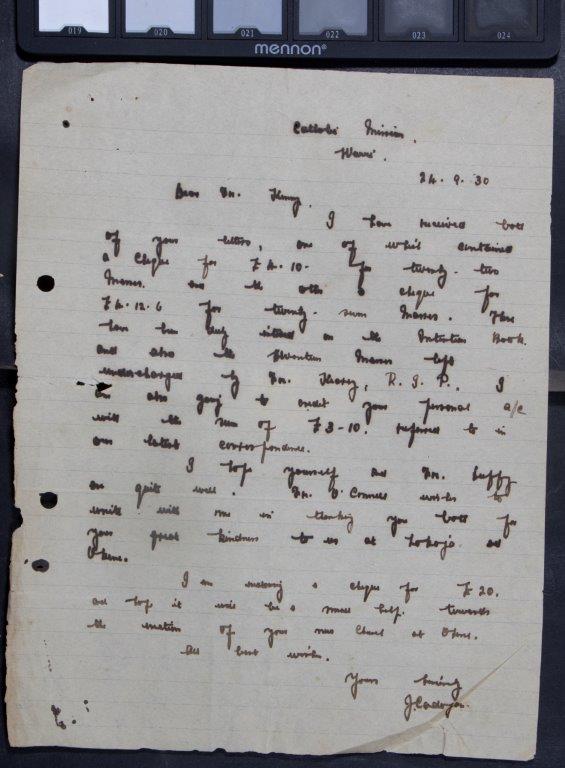 019 020 021 022 023 024
mennon®
Catholic Mission,
Warri.
24. 9. 30
Dear Fr.
I have received both
of your letters, one of which contained
a cheque for £4.10. for twenty-two
Masses. and the other a cheque for
£4.12.6 for twenty-seven Masses. These
have been duly entered in the Intention Book.
and also the seventeen Masses left
undischarged by Fr. R.I.P., I
am also going to credit your personal a/c
with the sum of £3-10. referred to in
our latest correspondence.
I hope yourself and Fr.
are quite well. Fr. O'Connell wishes to
unite with me in thanking you both for
your great kindness to us at Lokoja and
Okene.
I am enclosing a cheque for £20.
and hope it will be a small help towards
the erection of your new Church at Okene.
All best wishes.
Yours